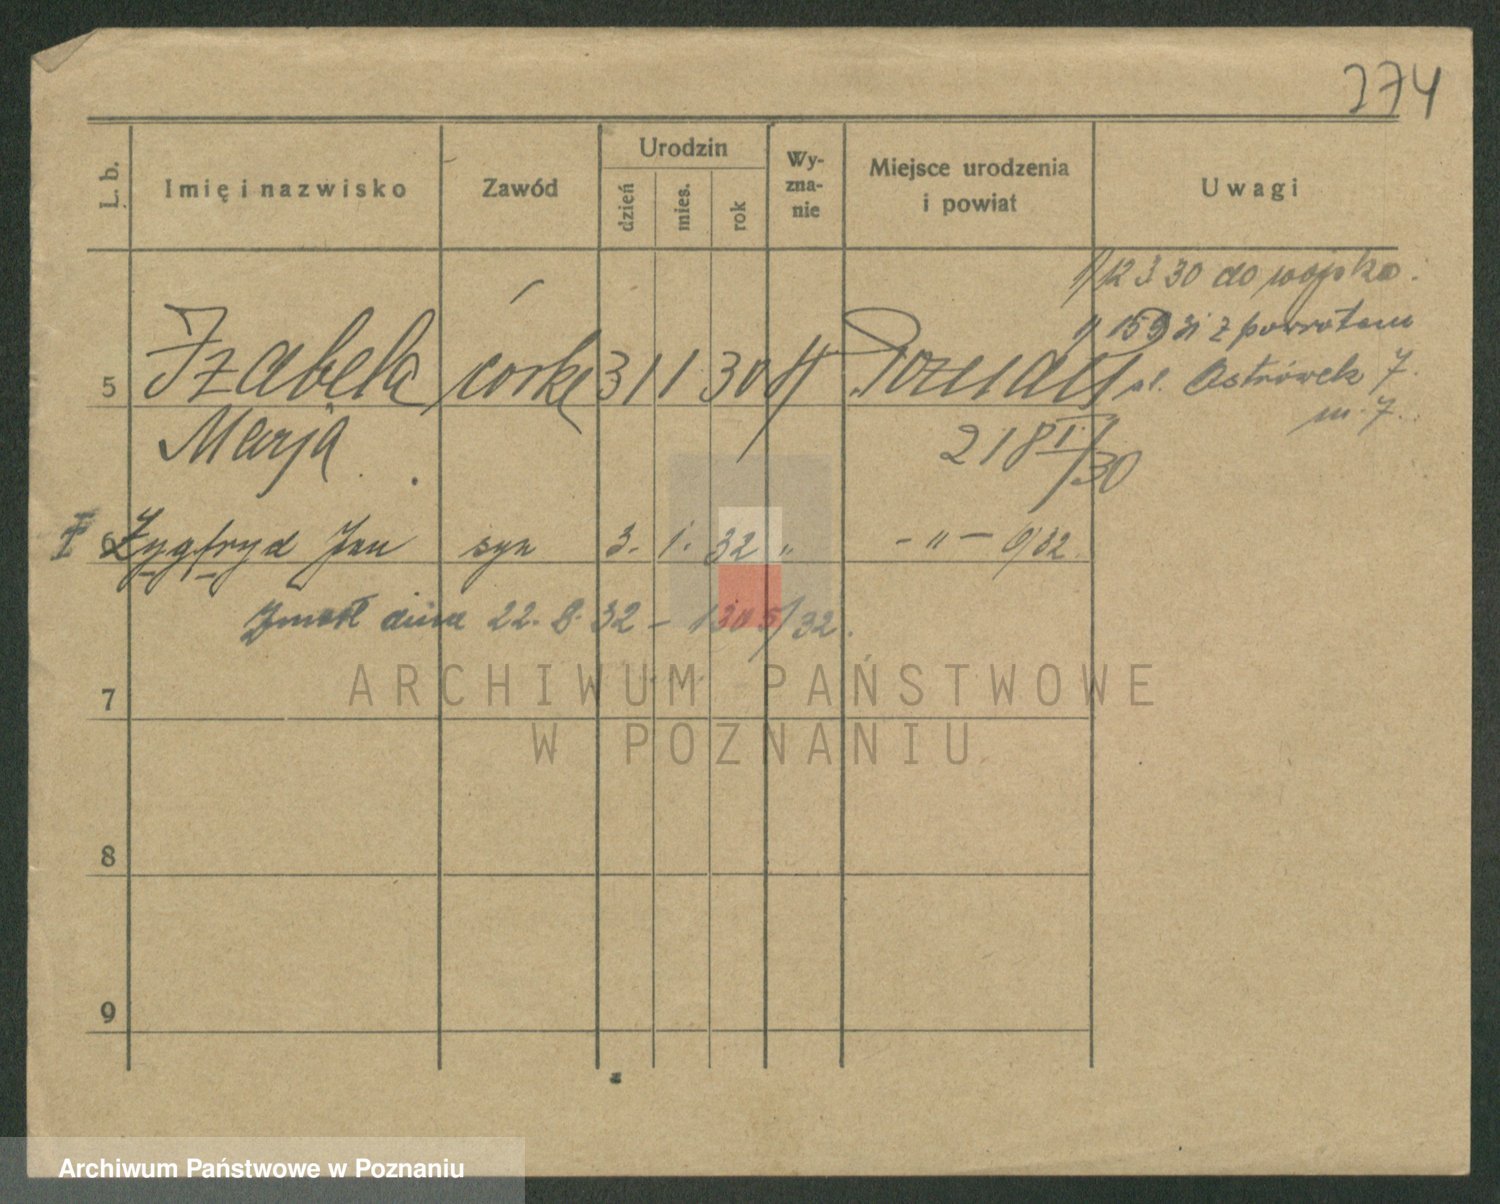 274
L. b.
Imię i nazwisko
Zawód
Urodzin
dzień
mies.
rok
Wy-
zna-
nie
Miejsce urodzenia
i powiat
Uwagi
12 3 30 do wojska.
z powrotem
ul. Ostrówek 7.
m. 7.
5 Izabela córka 31 1 30 Poznań
Marja 218 I/30
6 Zygfryd Jan syn 3. 1. 32 " - " - /32.
Zmarł dnia 22. 8. 32 - 1305/32.
7
8
9
ARCHIWUM PAŃSTWOWE
W POZNANIU
Archiwum Państwowe w Poznaniu